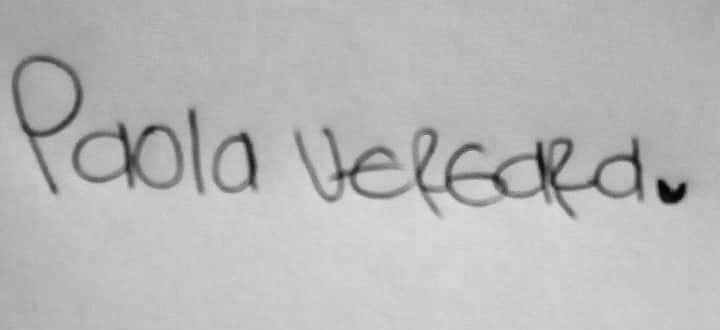 Paola Vergara.